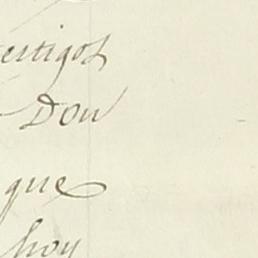 estigos
Don
que
hoy